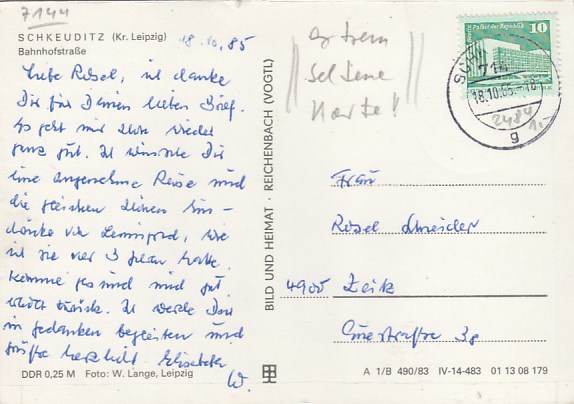 7144
SCHKEUDITZ (Kr. Leipzig)
Bahnhofstraße
18.10.85
Liebe Rosel, ich danke
Dir für Deinen lieben Brief.
Es geht mir schon wieder
ganz gut. Ich wünsche Dir
eine angenehme Reise und
die gleichen schönen Ein-
drücke von Leningrad, wie
ich sie vor 3 Jahren hatte.
Komme gesund und gut
zurück. Ich werde Dich
in Gedanken begleiten und
grüße herzlich Elisabeth
W.
DDR 0,25 M Foto: W. Lange, Leipzig
BILD UND HEIMAT · REICHENBACH (VOGTL)
extrem
seltene
Karte!
10
Palast der Republik
714
18.10.85-18
g
2484
1.-
Frau
Rosel Schneider
4900 Zeitz
str 3g
A 1/B 490/83 IV-14-483 01 13 08 179